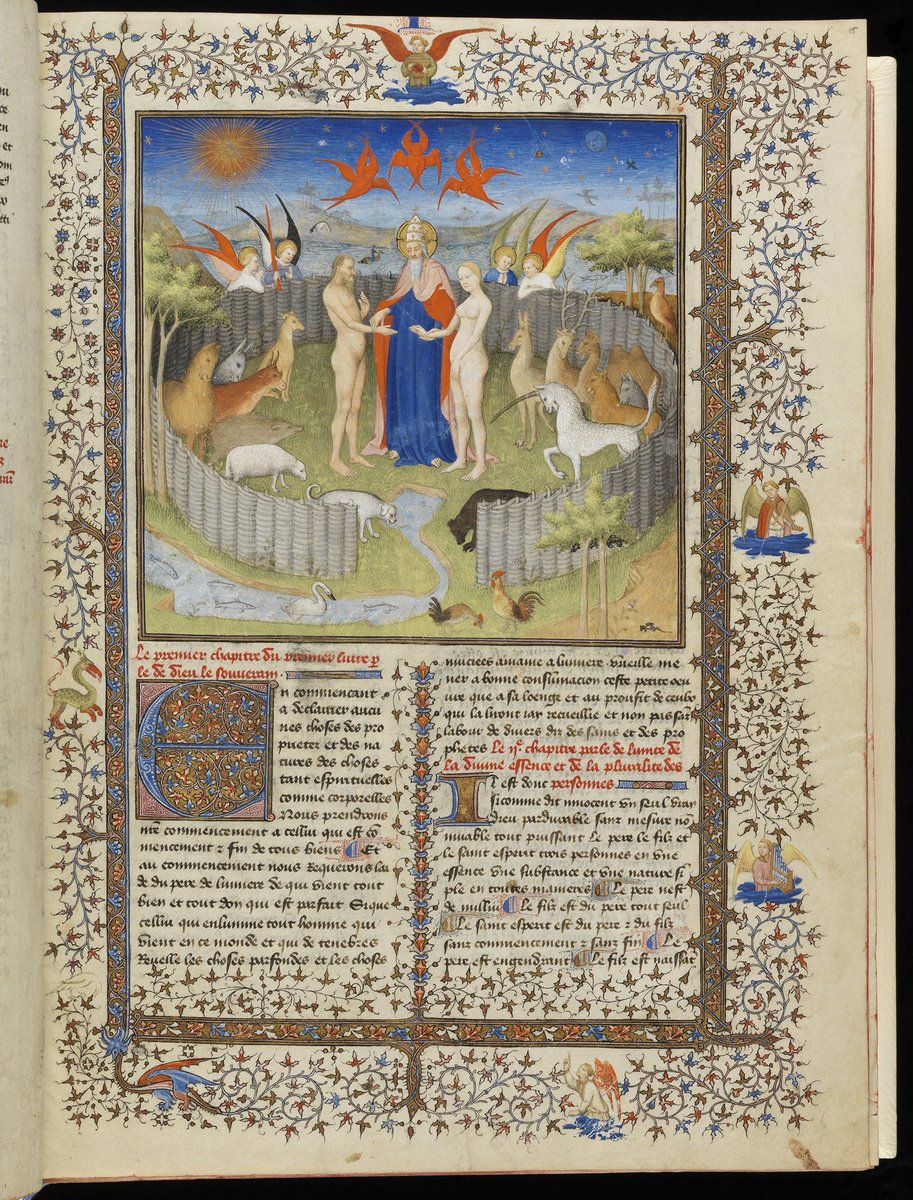 15
Le premier chapitre du premier liure p̲
le de dieu le souuerain
En commencant
a declairier aucu
nes choses des pro
prietez et des na
tures des choses
tant espirituelles
comme corporelles
Nous prendrons
nr̃e commencement a cellui qui est co
mencement ⁊ fin de tous biens Et
au commencement nous Requerons lai
de du pere de lumiere de qui vient tout
bien et tout don qui est parfait Si que
cellui qui enlumine tout homme qui
vient en ce monde et qui de tenebres
Reuelle les choses parfondes et les choses
muciees amaine a lumiere vueille me
ner a bonne consumacion ceste petite oeu
ure que a sa loenge et au proufit de ceulx
qui la liront iay recueillie et non pas sãz
labour de diuers diz des sains et des pro
phetes Le ijᵉ chapitre parle de lunite de
la diuine essence et de la pluralite des
personnes
Il est donc
si comme dit innocent vn seul vray
dieu pardurable sanz mesure no
muable tout puissant Le pere le filz et
le saint esperit trois personnes en vne
essence vne substance et vne nature si
ple en toutes manieres Le pere nest
de nullui Le filz est du pere tout seul
Le saint esperit est du pere ⁊ du filz
sanz commencement ⁊ sanz fin Le
pere est engendrant Le filz est naissãt